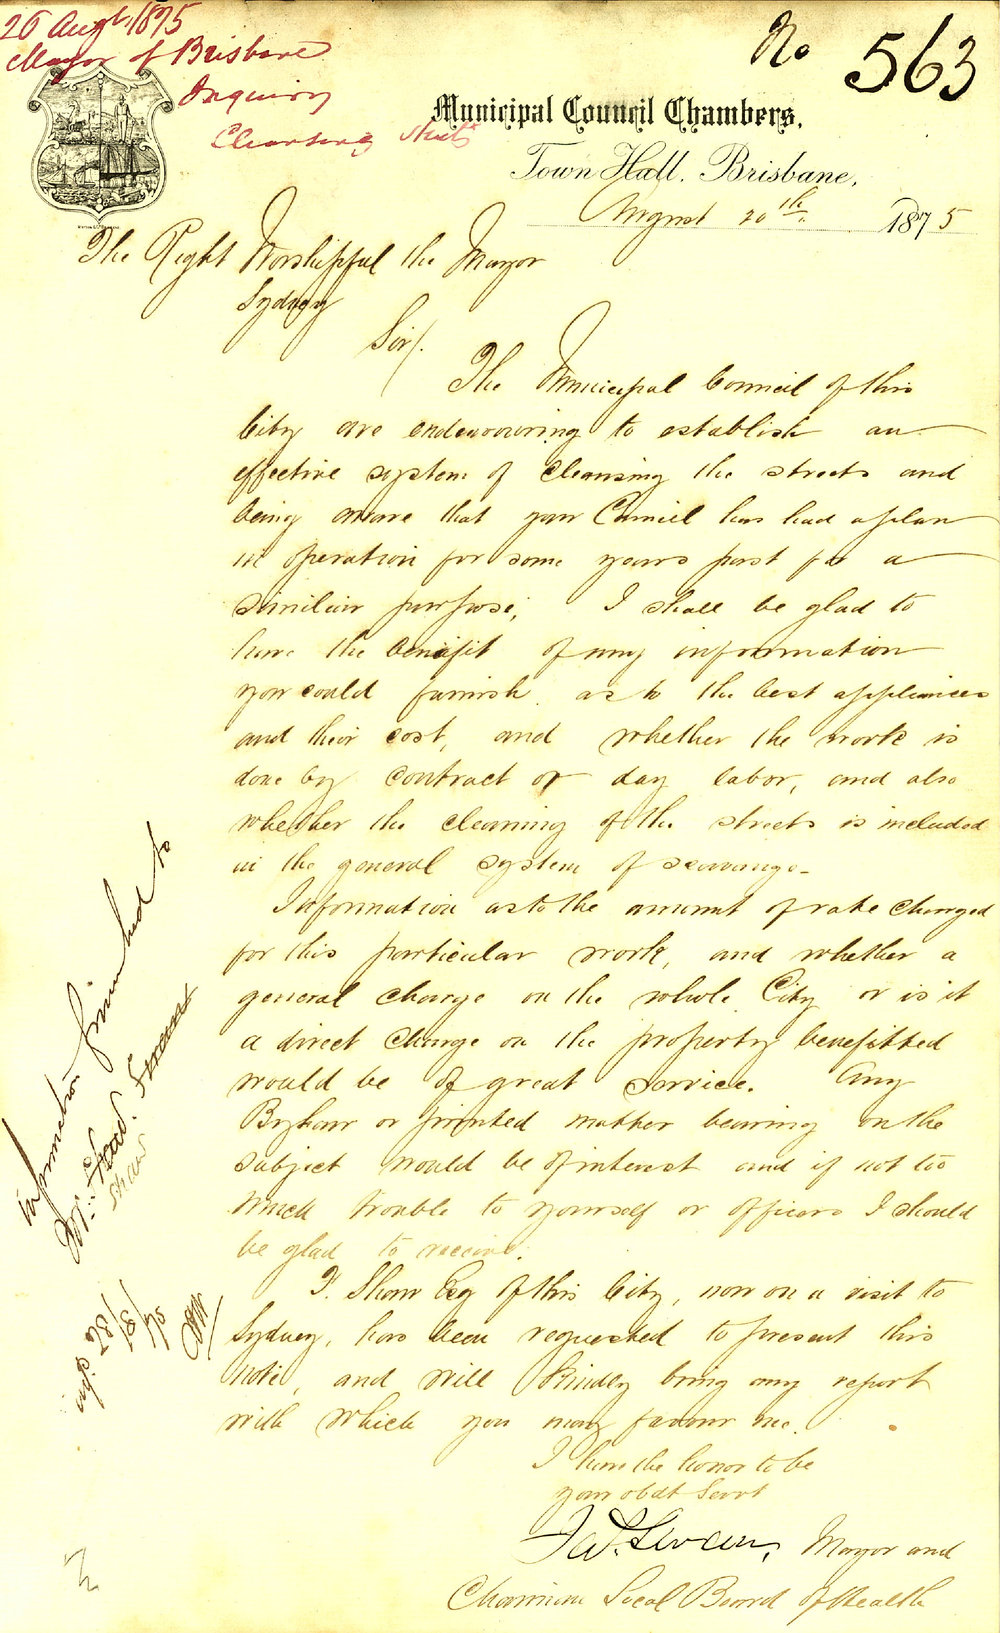 26 Augt 1875
Mayor of Brisbane
Inquiry
Cleansing
No 563
Municipal Council Chambers,
Town Hall, Brisbane,
August 20th 1875
The Right Worshipful the Mayor
Sydney
Sir/.
The Municipal Council of this
City are endeavouring to establish an
effective system of cleansing the streets and
being aware that your Council has had a plan
in operation for some years past for a
similar purpose, I shall be glad to
have the benefit of any information
you could furnish as to the best appliances
and their cost, and whether the work is
done by contract or day labor, and also
whether the cleaning of the streets is included
in the general system of scavenge.
Information as to the amount of rate charged
for this particular work, and whether a
general charge on the whole City or is it
a direct charge on the property benefitted
would be of great service. Any
Byelaw or printed matter bearing on the
subject would be of interest and if not too
much trouble to yourself or officers I should
be glad to receive.
Shaw Esq of this City, now on a visit to
Sydney, has been requested to present this
note, and will kindly bring any report
with which you may favour me.
I have the honor to be
your obdt Servt
Jas. Swan, Mayor and
Chairman Local Board of Health
Information furnished to
Mr.
Shaw